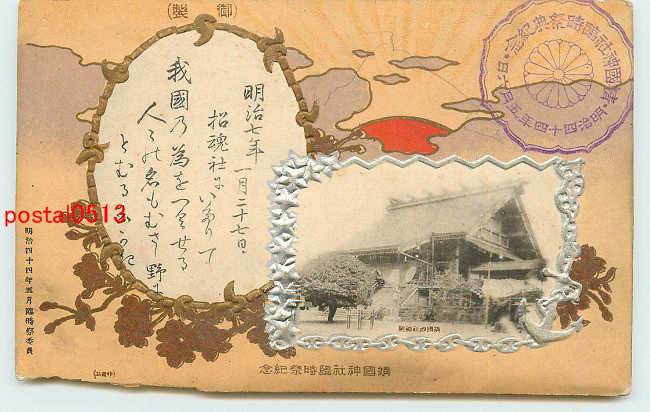 (御製)
明治七年一月二十七日、
招魂社にいたりて
我國乃為をつくせる
人々の名もむさし野に
とむる玉かき
靖國神社臨時祭典紀念
明治四十四年五月
postal0513
明治四十四年五月臨時祭委員
靖國神社臨時祭紀念
(非賣品)